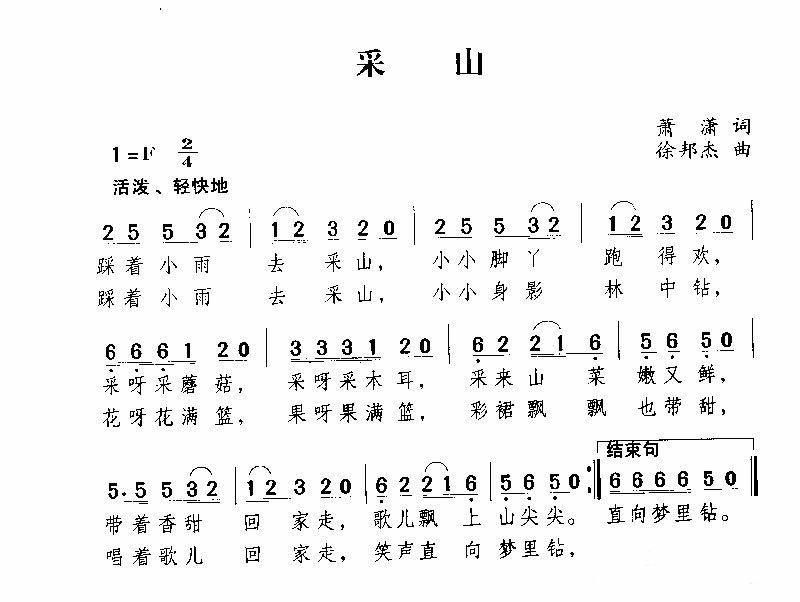 采 山
萧 潇 词
1=F 2/4
徐邦杰 曲
活泼、轻快地
2 5 5 3 2 | 1 2 3 2 0 | 2 5 5 3 2 | 1 2 3 2 0 |
踩着小雨 去 采山, 小小脚丫 跑 得欢,
踩着小雨 去 采山, 小小身影 林 中钻,
6 6 6 1 2 0 | 3 3 3 1 2 0 | 6 2 2 1 6 | 5 6 5 0 |
采呀采蘑菇, 采呀采木耳, 采来山 菜 嫩又鲜,
花呀花满篮, 果呀果满篮, 彩裙飘 飘 也带甜,
结束句
5. 5 5 3 2 | 1 2 3 2 0 | 6 2 2 1 6 | 5 6 5 0 :‖ 6 6 6 6 5 0 ‖
带着香甜 回 家走, 歌儿飘 上 山尖尖。 直向梦里钻。
唱着歌儿 回 家走, 笑声直 向 梦里钻,